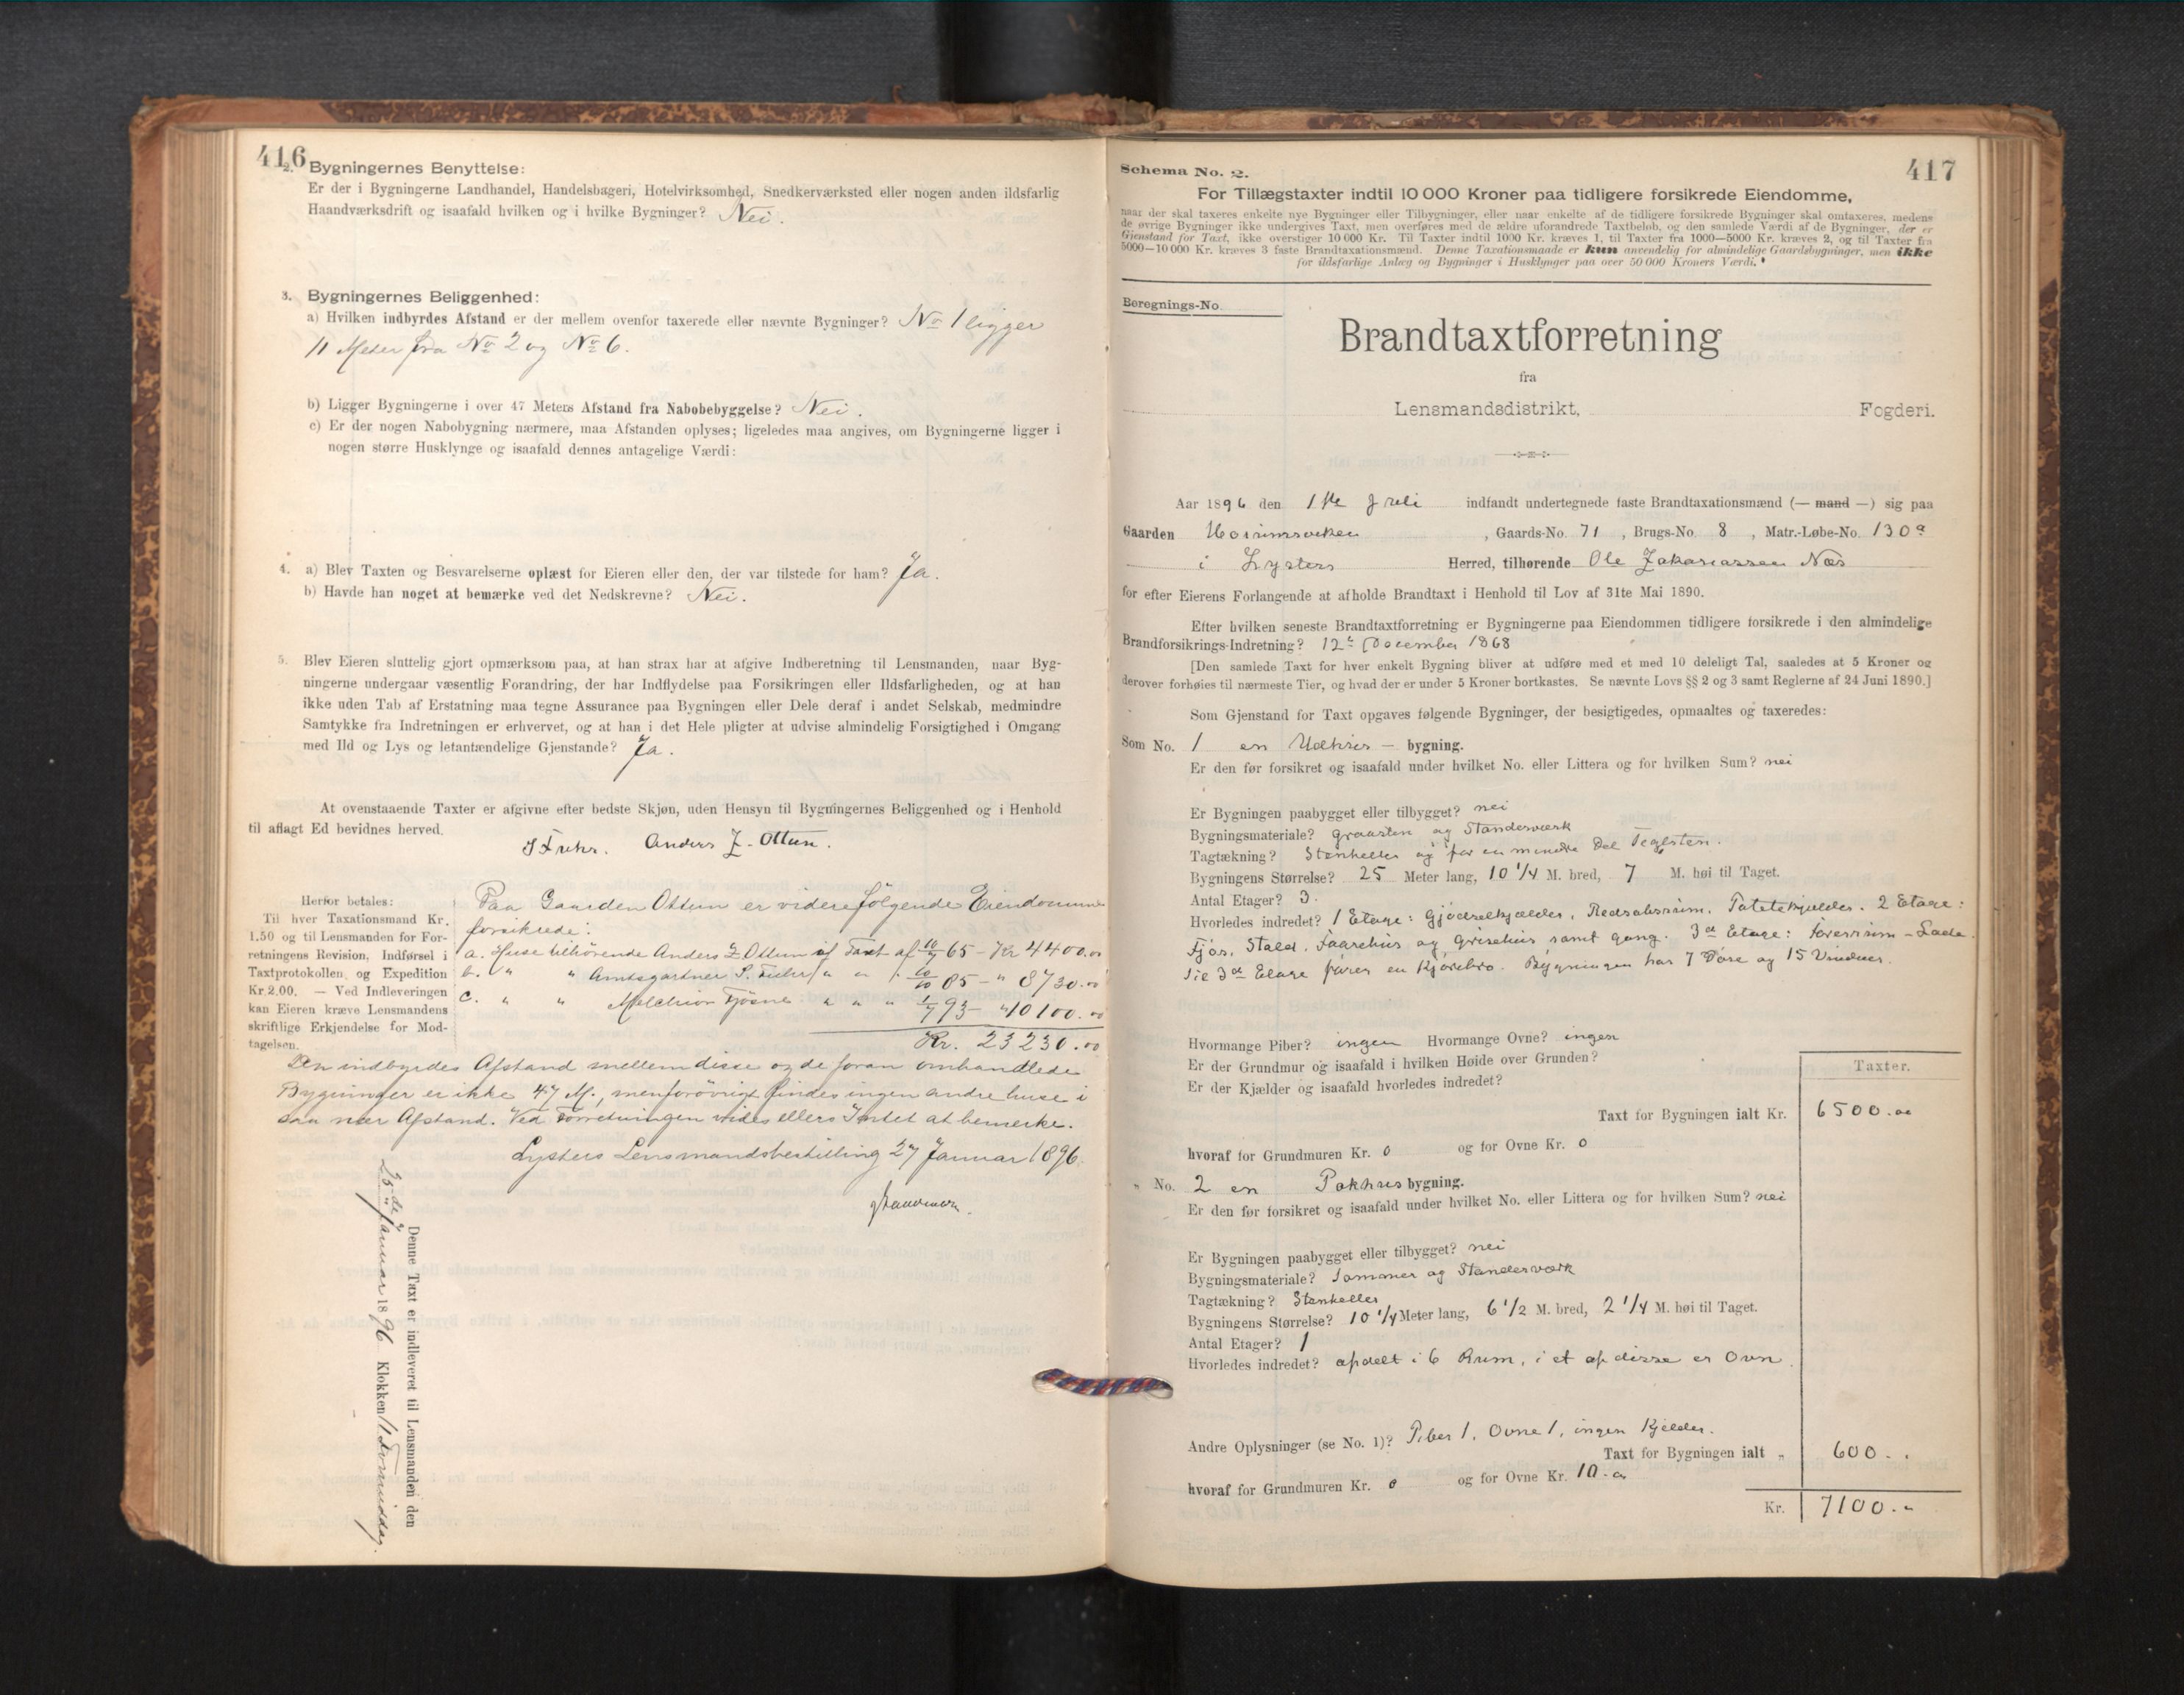 416
2. Bygningernes Benyttelse:
Er der i Bygningerne Landhandel, Handelsbageri, Hotelvirksomhed, Snedkerværksted eller nogen anden ildsfarlig
Haandværksdrift og isaafald hvilken og i hvilke Bygninger? Nei.
3. Bygningernes Beliggenhed:
a) Hvilken indbyrdes Afstand er der mellem ovenfor taxerede eller nævnte Bygninger? No 1 ligger
11 Meter fra No 2 og No 6.
b) Ligger Bygningerne i over 47 Meters Afstand fra Nabobebyggelse? Nei.
c) Er der nogen Nabobygning nærmere, maa Afstanden oplyses; ligeledes maa angives, om Bygningerne ligger i
nogen større Husklynge og isaafald dennes antagelige Værdi:
4. a) Blev Taxten og Besvarelserne oplæst for Eieren eller den, der var tilstede for ham? Ja.
b) Havde han noget at bemærke ved det Nedskrevne? Nei.
5. Blev Eieren sluttelig gjort opmærksom paa, at han strax har at afgive Indberetning til Lensmanden, naar Byg-
ningerne undergaar væsentlig Forandring, der har Indflydelse paa Forsikringen eller Ildsfarligheden, og at han
ikke uden Tab af Erstatning maa tegne Assurance paa Bygningen eller Dele deraf i andet Selskab, medmindre
Samtykke fra Indretningen er erhvervet, og at han i det Hele pligter at udvise almindelig Forsigtighed i Omgang
med Ild og Lys og letantændelige Gjenstande? Ja.
At ovenstaaende Taxter er afgivne efter bedste Skjøn, uden Hensyn til Bygningernes Beliggenhed og i Henhold
til aflagt Ed bevidnes herved.
Anders Z. Ottum.
Herfor betales:
Til hver Taxationsmand Kr.
1.50 og til Lensmanden for For-
retningens Revision, Indførsel i
Taxtprotokollen og Expedition
Kr 2.00. — Ved Indleveringen
kan Eieren kræve Lensmandens
skriftlige Erkjendelse for Mod-
tagelsen.
Paa Gaarden Ottum er videre følgende Eiendomme
forsikrede:
a. Huse tilhörende Anders Z Ottum af Taxt af 10/7 65 - Kr 4400.00
b. " " Amtsgartner " " 85 - " 8730.00
c. " " Melchior " " " 93 - " 10100.00
Kr. 23230.00
Den indbyrdes Afstand mellem disse og de foran omhandlede
Bygninger er ikke 47 M., men forövrigt findes ingen andre huse i
saa nær Afstand. Ved Forretningen vides ellers Intet at bemerke.
Lysters Lensmandsbestilling 27 Januar 1896.
Denne Taxt er indleveret til Lensmanden den
25de Januar 1896 Klokken 11 Formiddag.
417
Schema No. 2.
For Tillægstaxter indtil 10 000 Kroner paa tidligere forsikrede Eiendomme,
naar der skal taxeres enkelte nye Bygninger eller Tilbygninger, eller naar enkelte af de tidligere forsikrede Bygninger skal omtaxeres, medens
de øvrige Bygninger ikke undergives Taxt, men overføres med de ældre uforandrede Taxtbeløb, og den samlede Værdi af de Bygninger, der er
Gjenstand for Taxt, ikke overstiger 10 000 Kr. Til Taxter indtil 1000 Kr. kræves 1, til Taxter fra 1000—5000 Kr. kræves 2, og til Taxter fra
5000—10 000 Kr. kræves 3 faste Brandtaxationsmænd. Denne Taxationsmaade er kun anvendelig for almindelige Gaardsbygninger, men ikke
for ildsfarlige Anlæg og Bygninger i Husklynger paa over 50 000 Kroners Værdi.
Beregnings-No.
Brandtaxtforretning
fra
Lensmandsdistrikt, Fogderi.
Aar 1896 den 1ste Juli indfandt undertegnede faste Brandtaxationsmænd (— mand —) sig paa
Gaarden , Gaards-No. 71 , Brugs-No. 8 , Matr.-Løbe-No. 130a
i Lysters Herred, tilhørende Ole Zakariassen Næs
for efter Eierens Forlangende at afholde Brandtaxt i Henhold til Lov af 31te Mai 1890.
Efter hvilken seneste Brandtaxtforretning er Bygningerne paa Eiendommen tidligere forsikrede i den almindelige
Brandforsikrings-Indretning? 12te December 1868
[Den samlede Taxt for hver enkelt Bygning bliver at udføre med et med 10 deleligt Tal, saaledes at 5 Kroner og
derover forhøies til nærmeste Tier, og hvad der er under 5 Kroner bortkastes. Se nævnte Lovs §§ 2 og 3 samt Reglerne af 24 Juni 1890.]
Som Gjenstand for Taxt opgaves følgende Bygninger, der besigtigedes, opmaaltes og taxeredes:
Som No. 1 en Udhus — bygning.
Er den før forsikret og isaafald under hvilket No. eller Littera og for hvilken Sum? nei
Er Bygningen paabygget eller tilbygget? nei
Bygningsmateriale? Graasten og Standerværk
Tagtækning? Stenheller og for en mindre Del Teglsten.
Bygningens Størrelse? 25 Meter lang, 10 1/4 M. bred, 7 M. høi til Taget.
Antal Etager? 3.
Hvorledes indredet? 1 Etage: Gjødselkjælder, Redskabsrum, Potetekjælder. 2 Etage:
Fjøs, Stald, Faarehus og Grisehus samt gang. 3de Etage: Foerrum - Lade.
Til 3de Etage fører en Kjørebro. Bygningen har 7 Døre og 15 Vinduer.
Hvormange Piber? ingen Hvormange Ovne? ingen
Er der Grundmur og isaafald i hvilken Høide over Grunden?
Er der Kjælder og isaafald hvorledes indredet?
Taxter.
Taxt for Bygningen ialt Kr. 6500.00
hvoraf for Grundmuren Kr. 0 og for Ovne Kr. 0
" No. 2 en Pakhus bygning.
Er den før forsikret og isaafald under hvilket No. eller Littera og for hvilken Sum? nei
Er Bygningen paabygget eller tilbygget? nei
Bygningsmateriale? Tømmer og Standerværk
Tagtækning? Stenheller
Bygningens Størrelse? 10 1/4 Meter lang, 6 1/2 M. bred, 2 1/4 M. høi til Taget.
Antal Etager? 1
Hvorledes indredet? afdelt i 6 Rum, i et af disse er Ovn.
Andre Oplysninger (se No. 1)? Piber 1, Ovne 1, ingen Kjelder.
Taxt for Bygningen ialt " 600. "
hvoraf for Grundmuren Kr. 0 og for Ovne Kr. 10.00
Kr. 7100. "